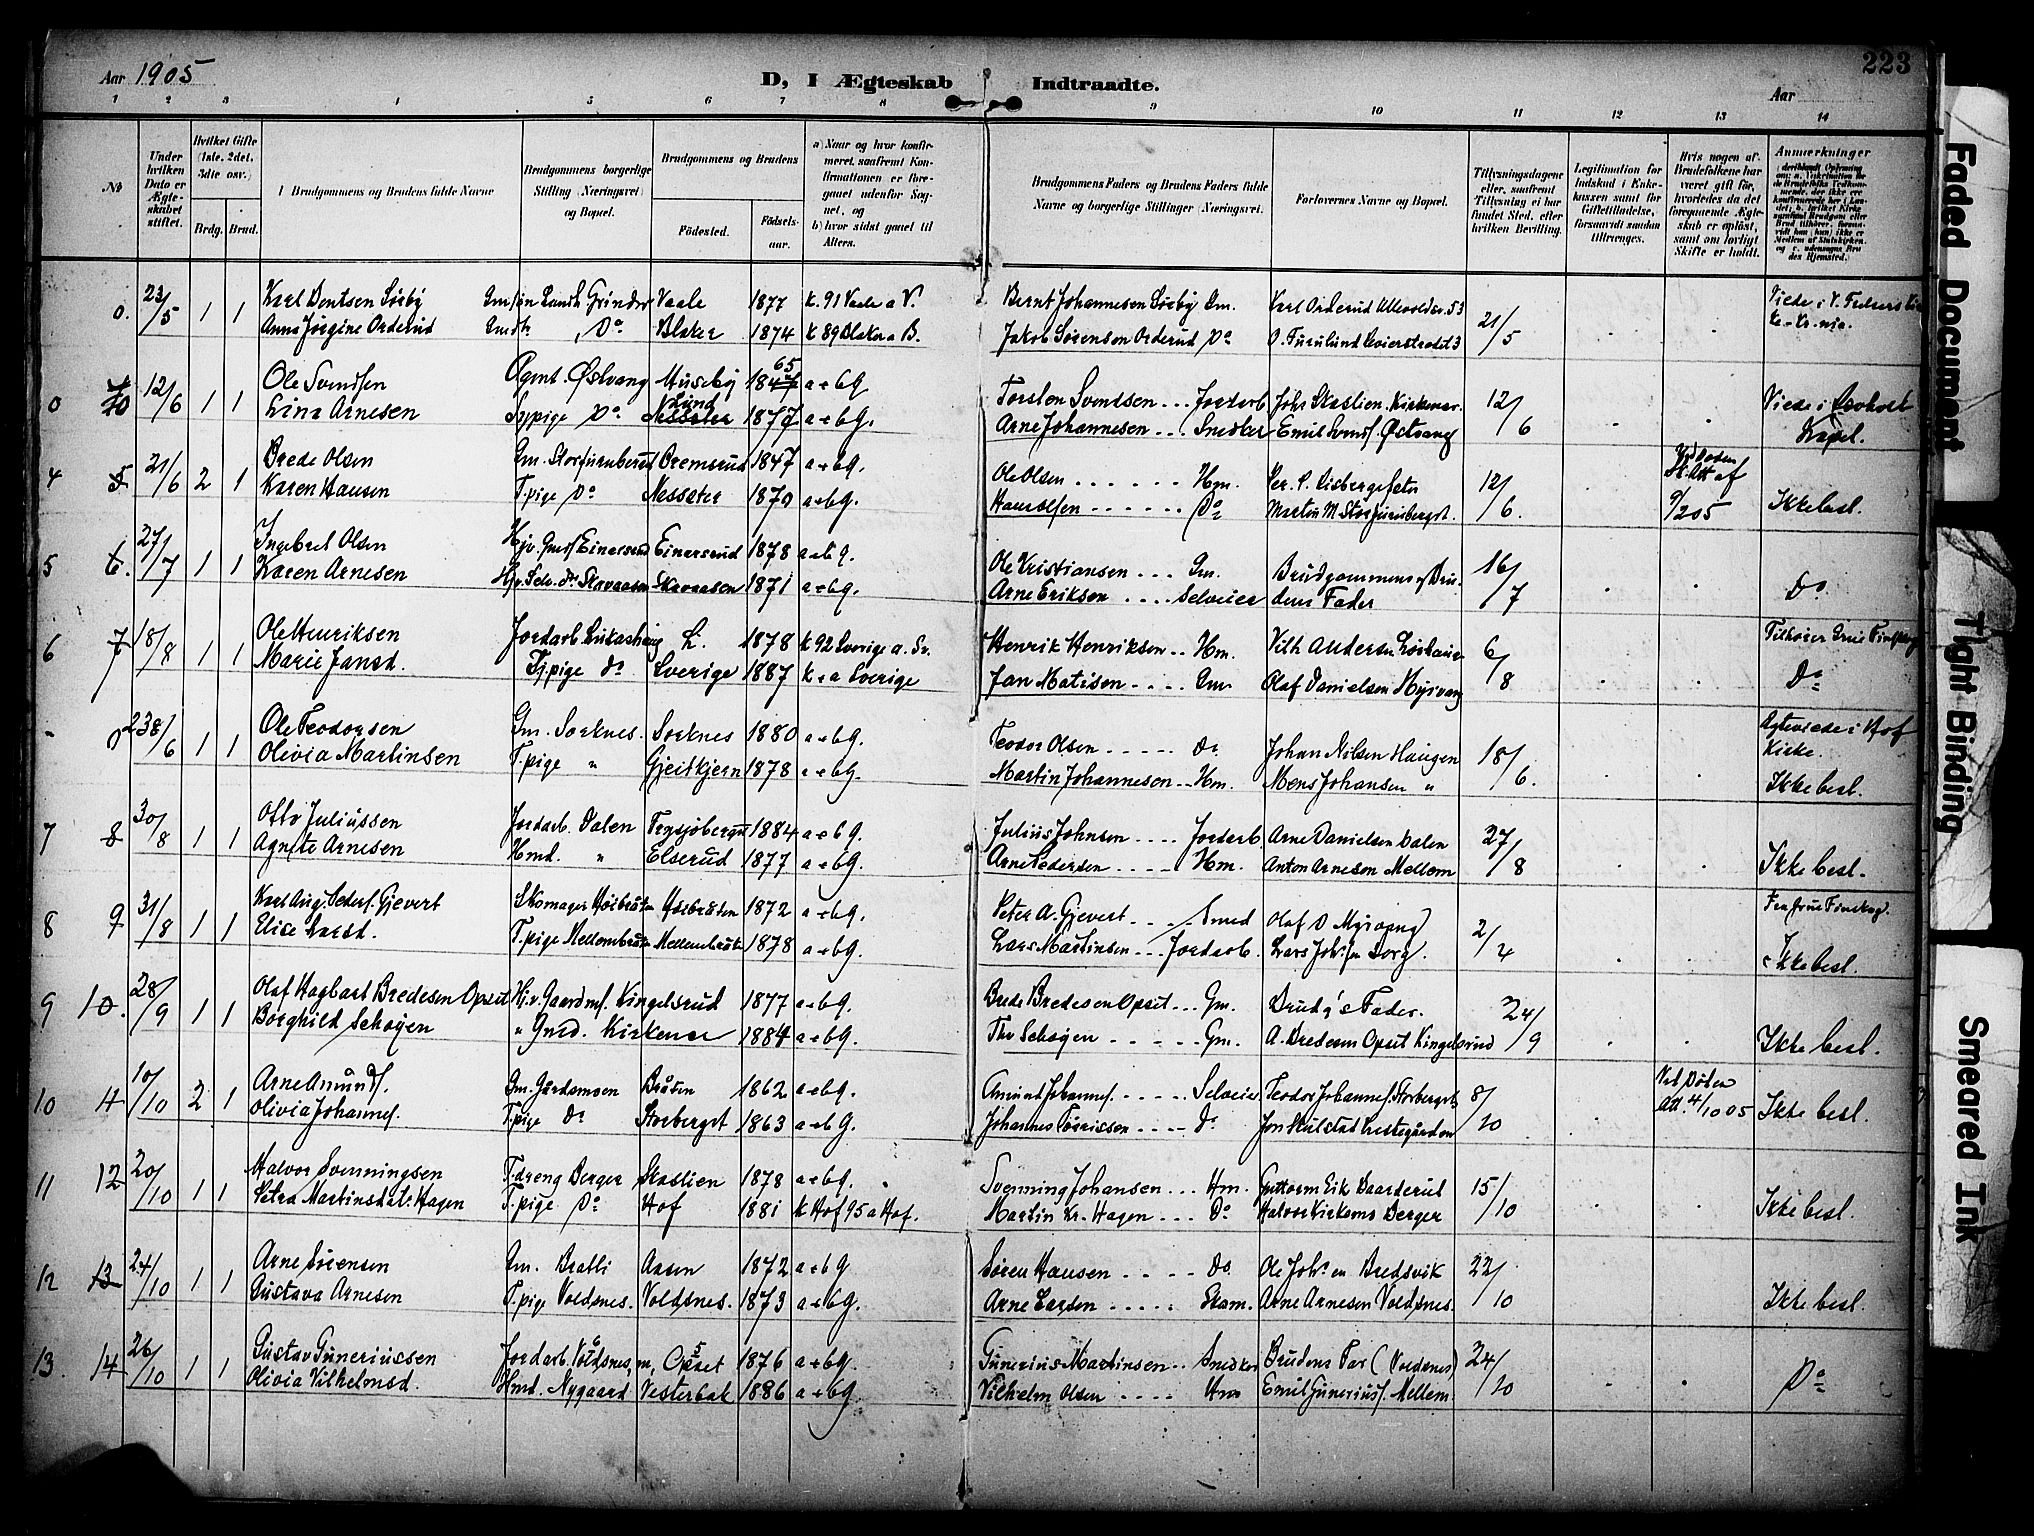 223
Aar 1905
D, I Ægteskab Indtraadte.
Aar
1 2 3 4 5 6 7 8 9 10 11 12 13 14
No
Under hvilken Dato er Ægteskabet stiftet.
Hvilket Gifte (1ste, 2det, 3die osv.)
Brdg. Brud.
Brudgommens og Brudens fulde Navne
Brudgommens borgerlige Stilling (Næringsvei) og Bopæl.
Brudgommens og Brudens
Fødested. Fødsels-aar.
a) Naar og hvor konfirmeret, saafremt Konfirmationen er foregaaet udenfor Sognet, og
b) hvor sidst gaaet til Alters.
Brudgommens Faders og Brudens Faders fulde Navne og borgerlige Stillinger (Næringsvei).
Forlovernes Navne og Bopæl.
Tillysningsdagene eller, saafremt Tillysning ei har fundet Sted, efter hvilken Bevilling.
Legitimation for Indskud i Enkekassen samt for Giftetilladelse, forsaavidt saadan tiltrænges.
Hvis nogen af Brudefolkene har været gift før, hvorledes da det foregaaende Ægteskab er opløst, samt om lovligt Skifte er holdt.
Anmærkninger
0. 23/5 1 1 Karl Berntsen Sørby Gm/søn Grinder Vaale 1877 k. 91 Vaale a V. Bernt Johannesen Sørby Gm. Karl Orderud 53 21/5 Viede i V.
Anna Jørgine Orderud Gmdtr Do Blaker 1874 k 89 Blaker a B. Jakob Sørensen Orderud Do O. Furulund 3
0 12/6 1 1 Ole Svendsen Agent. Østvang Huseby 1865 a+b G Torsten Svendsen Jordarb Johs Skaslien. Kirkener 12/6 Viede i
Lina Arnesen Sypige Do Lund 1877 a+b G. Arne Johannesen Snedker Emil Svends. Østvang Kapel.
4 5 21/6 2 1 Brede Olsen Gm. Storfuruberget 1847 a+b G. Ole Olsen Hm. Per P. 12/6 Ved Døden Sk. Att af
Karen Hansen T.pige Do Nesseter 1870 a+b G. Hans Olsen Do Martin M Storfuruberget. 9/2 05 Ikke besl.
5 6. 27/7 1 1 Ingebret Olsen Hjv. Gms. Einarsrud Einarsrud 1878 a+b G. Ole Kristiansen Gm. Brudgommens og Bru- 16/7
Karen Arnesen Hjv. Selv. dtr Skavaasen Skavaasen 1871 a+b G. Arne Eriksen Selveier dens Fader Do
6 7 18/8 1 1 Ole Henriksen Jordarb. Lukashaug L. 1878 k 92 Sverige a. Sv. Henrik Henriksen Hm. Vilh Andersen 6/8 Tilhører Grue Finskog
Marie Jansd. T.pige do Sverige 1887 k+a Sverige Jan Matisen Gm Olaf Danielsen Myrvang Do
0 23/6 1 1 Ole Teodorsen Gm. Sorknes. Sorknes 1880 a+b G. Teodor Olsen Do Johan Nilsen Haugen 18/6 Ægteviede i Hof Kirke.
Olivia Martinsen T.pige " Gjeitkjern 1878 a+b G. Martin Johannesen Hm. Mons Johansen " Ikke besl.
7 8 30/8 1 1 Otto Juliussen Jordarb. Dalen Frysjøberget 1884 a+b G. Julius Johnsen Jordarb. Arne Danielsen Dalen 27/8
Agnete Arnesen Hmd. " Elserud 1877 a+b G. Arne Pedersen Hm. Anton Arnesen Mellem Ikke besl.
8 9 31/8 1 1 Karl Aug. Peders. Gjevert Skomager Høsbråten Høsbråten 1872 a+b G. Peter A. Gjevert Smed Olaf D 2/4 Fra Grue Finskog.
Elise Larsd. T.pige Mellembråten Mellembråten 1878 a+b G. Lars Martinsen Jordarb. Lars Joh's Borg. Ikke besl.
9 10. 28/9 1 1 Olaf Hagbart Bredesen Opset Hj.v. Gaardms. Kingelsrud 1877 a+b G. Brede Bredesen Opset Gm. Brudg's Fader. 24/9
Borghild Schøyen " Gmd. Kirkener 1884 a+b G. Thv Schøyen Gm. A. Bredesen Opset Kingelsrud Ikke besl.
10 11 10/10 2 1 Arne Amunds. Gm. Gårdsmoen Bråten 1862 a+b G. Amund Johannes. Selveier Teodor Johannes. Storberget 8/10 Ved Døden
Olivia Johannes. T.pige Do Storberget 1863 a+b G. Johannes Tørrissen Do Jon Skulstad Prestegården Att. 4/10 05 Ikke besl.
11 12 20/10 1 1 Halvor Svenningsen T.dreng Berger Skaslien 1878 a+b G. Svenning Johansen Hm. Guttorm Eik Baarderud 15/10
Petra Martinsdatr. Hagen T.pige Do Hof 1881 k Hof 95 a Hof. Martin Kr. Hagen Do Halvor Kirkems Berger Ikke besl.
12 13 24/10 1 1 Arne Sørensen Gm. Bratli Aasen 1872 a+b G Søren Hansen Do. Ole Johsen Bredsvik 22/10
Gustava Arnesen T.pige Voldsnes. Voldsnes. 1873 a+b G. Arne Larsen Skom. Arne Arnesen Voldsnes. Ikke besl.
13. 14 26/10 1 1 Gustav Guneriussen Jordarb. Voldsnes, Opset 1876 a+b G. Gunerius Martinsen Snedker Brudens Far (Voldsnes) 24/10
Olivia Vilhelmsd. Hmd. Nygaard Vesterbak 1886 a+b G. Vilhelm Olsen Hm Emil Gunerius. Mellem. Do
Faded Document
Tight Binding
Smeared Ink